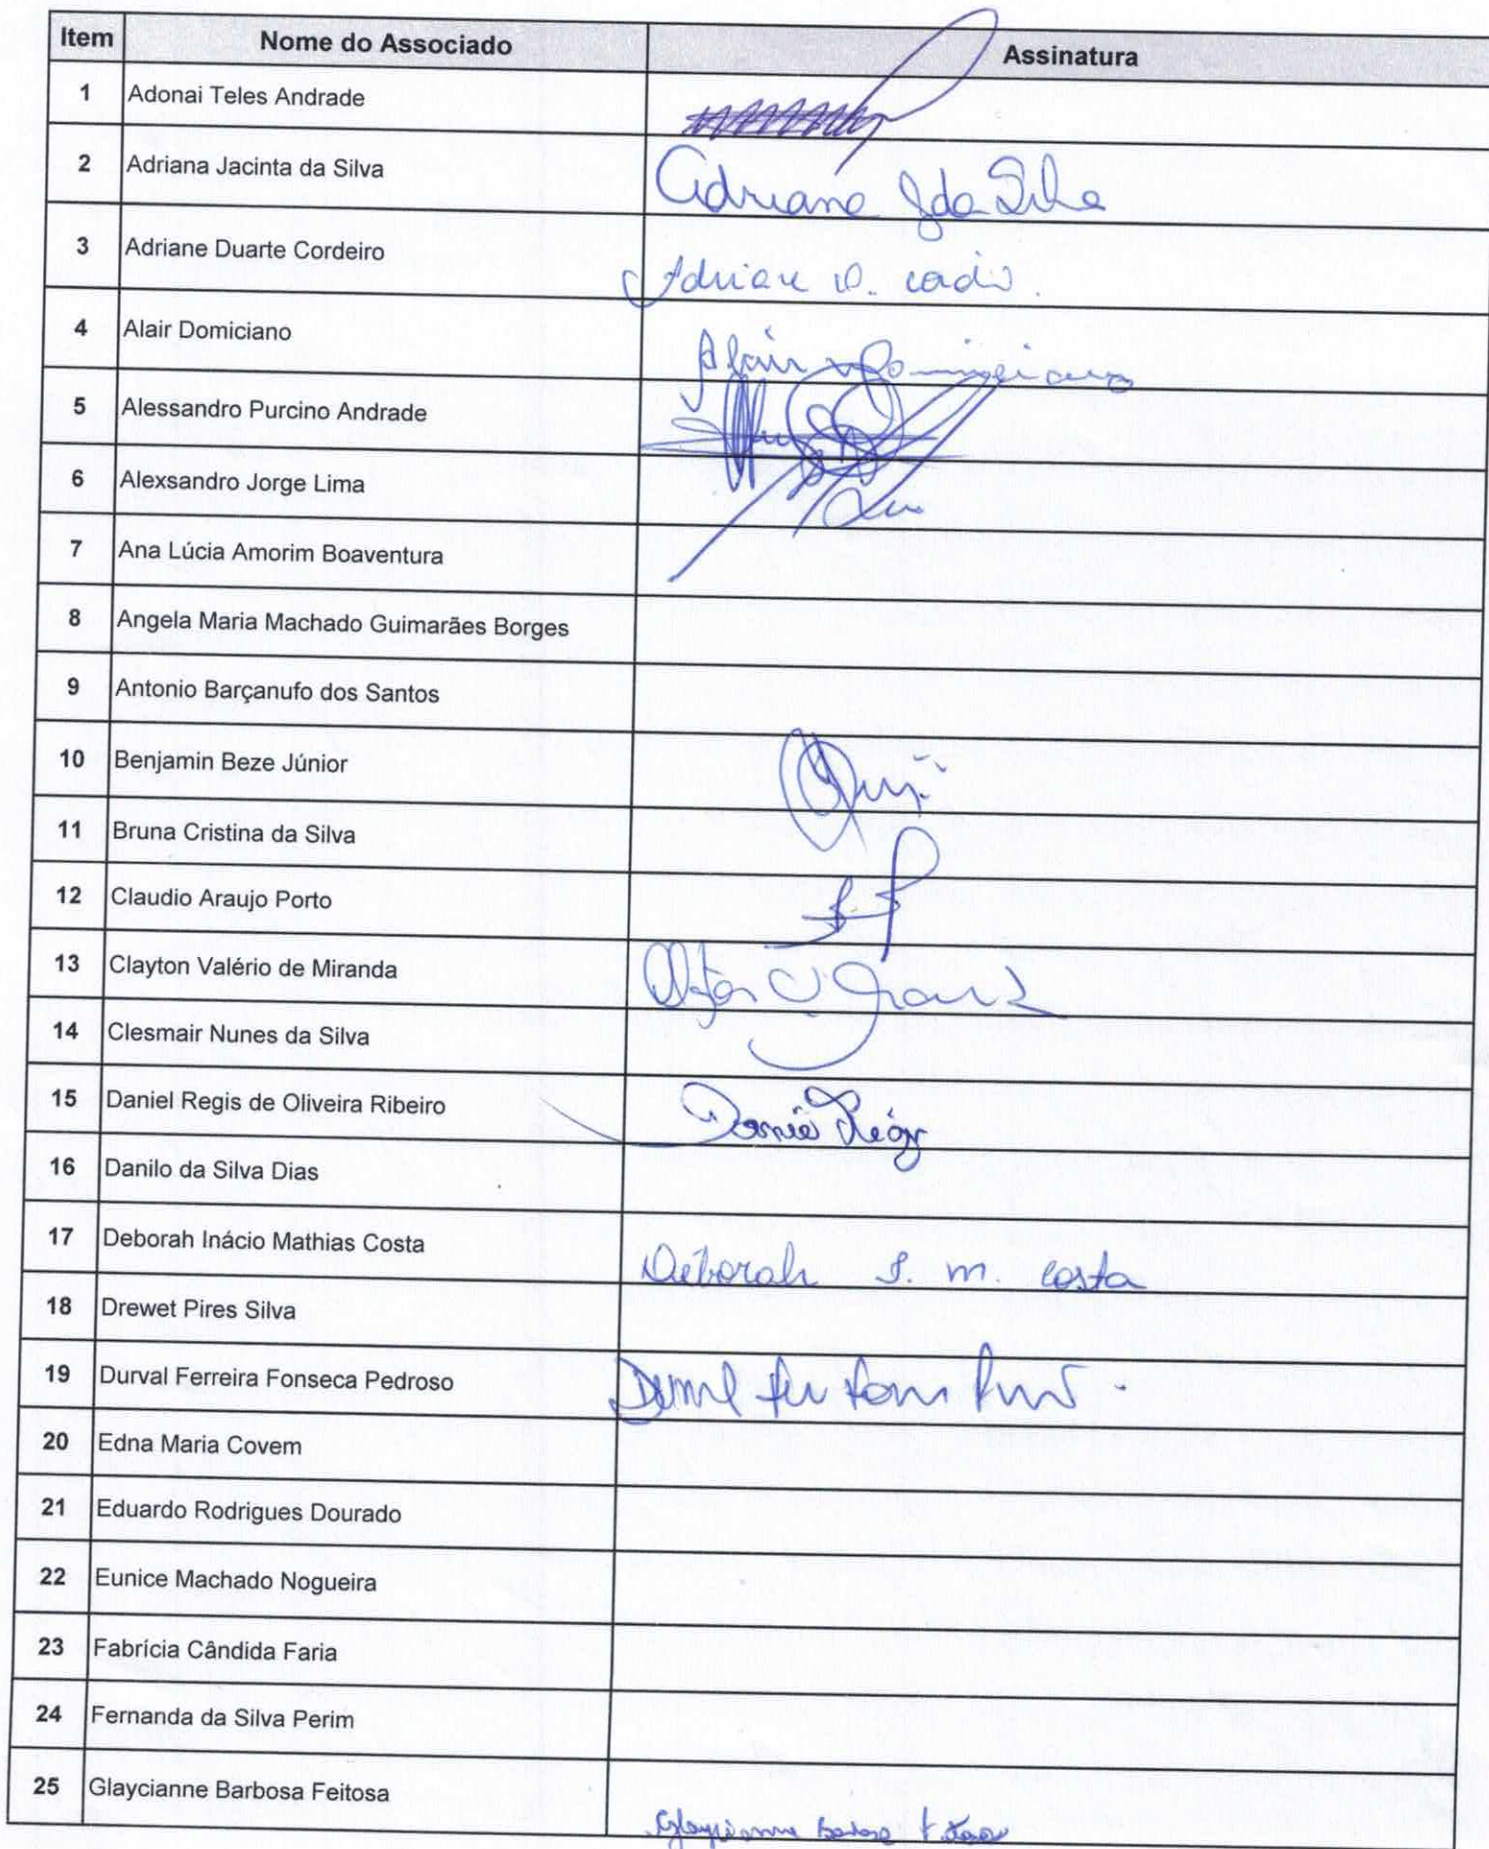 Item Nome do Associado Assinatura
1 Adonai Teles Andrade
2 Adriana Jacinta da Silva Adriana J da Silva
3 Adriane Duarte Cordeiro
4 Alair Domiciano Alair Domiciano
5 Alessandro Purcino Andrade
6 Alexsandro Jorge Lima
7 Ana Lúcia Amorim Boaventura
8 Angela Maria Machado Guimarães Borges
9 Antonio Barçanufo dos Santos
10 Benjamin Beze Júnior
11 Bruna Cristina da Silva
12 Claudio Araujo Porto
13 Clayton Valério de Miranda
14 Clesmair Nunes da Silva
15 Daniel Regis de Oliveira Ribeiro Daniel Régis
16 Danilo da Silva Dias
17 Deborah Inácio Mathias Costa Deborah I. M. Costa
18 Drewet Pires Silva
19 Durval Ferreira Fonseca Pedroso
20 Edna Maria Covem
21 Eduardo Rodrigues Dourado
22 Eunice Machado Nogueira
23 Fabrícia Cândida Faria
24 Fernanda da Silva Perim
25 Glaycianne Barbosa Feitosa Glaycianne Barbosa Feitosa